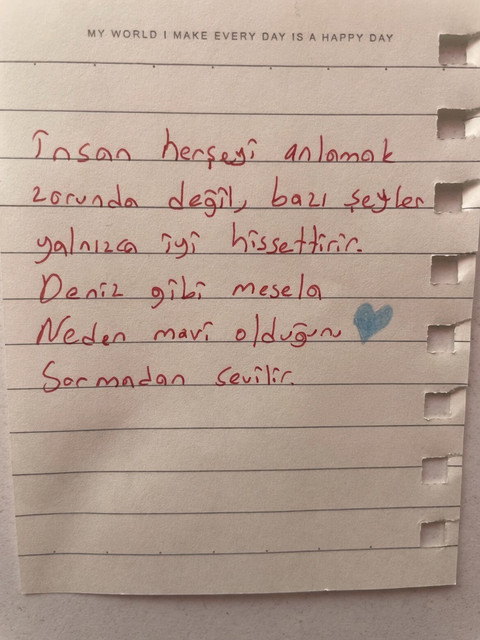 MY WORLD I MAKE EVERY DAY IS A HAPPY DAY
İnsan herşeyi anlamak
zorunda değil, bazı şeyler
yalnızca iyi hissettirir.
Deniz gibi mesela
Neden mavi olduğunu
Sormadan sevilir.